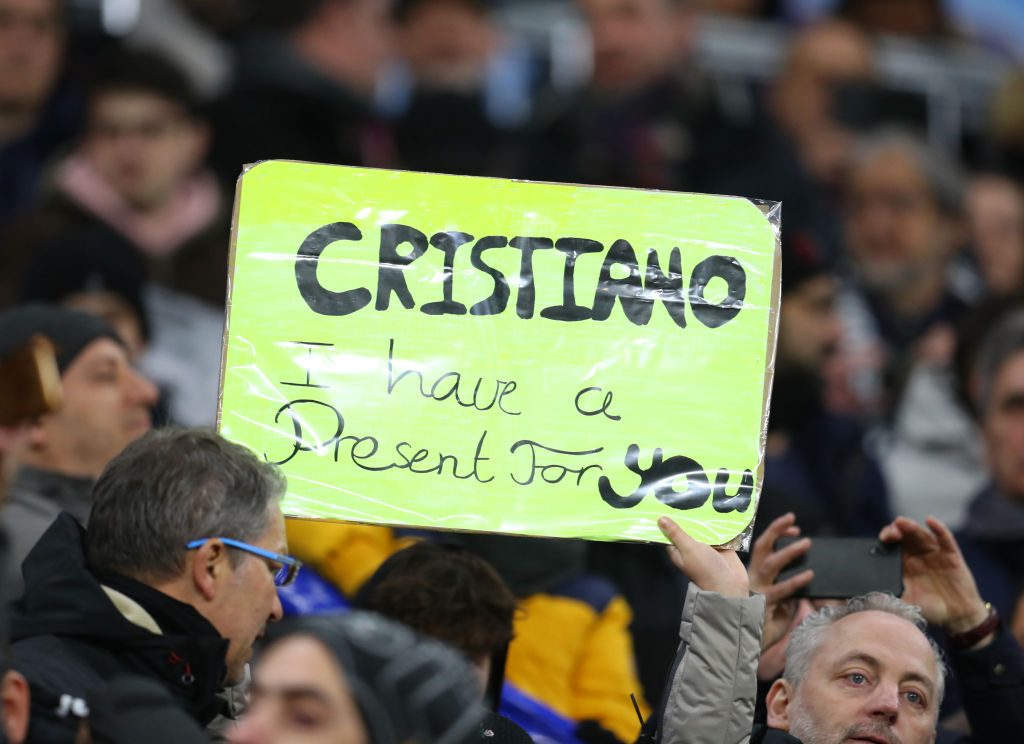 CRISTIANO
I have a
Present For You